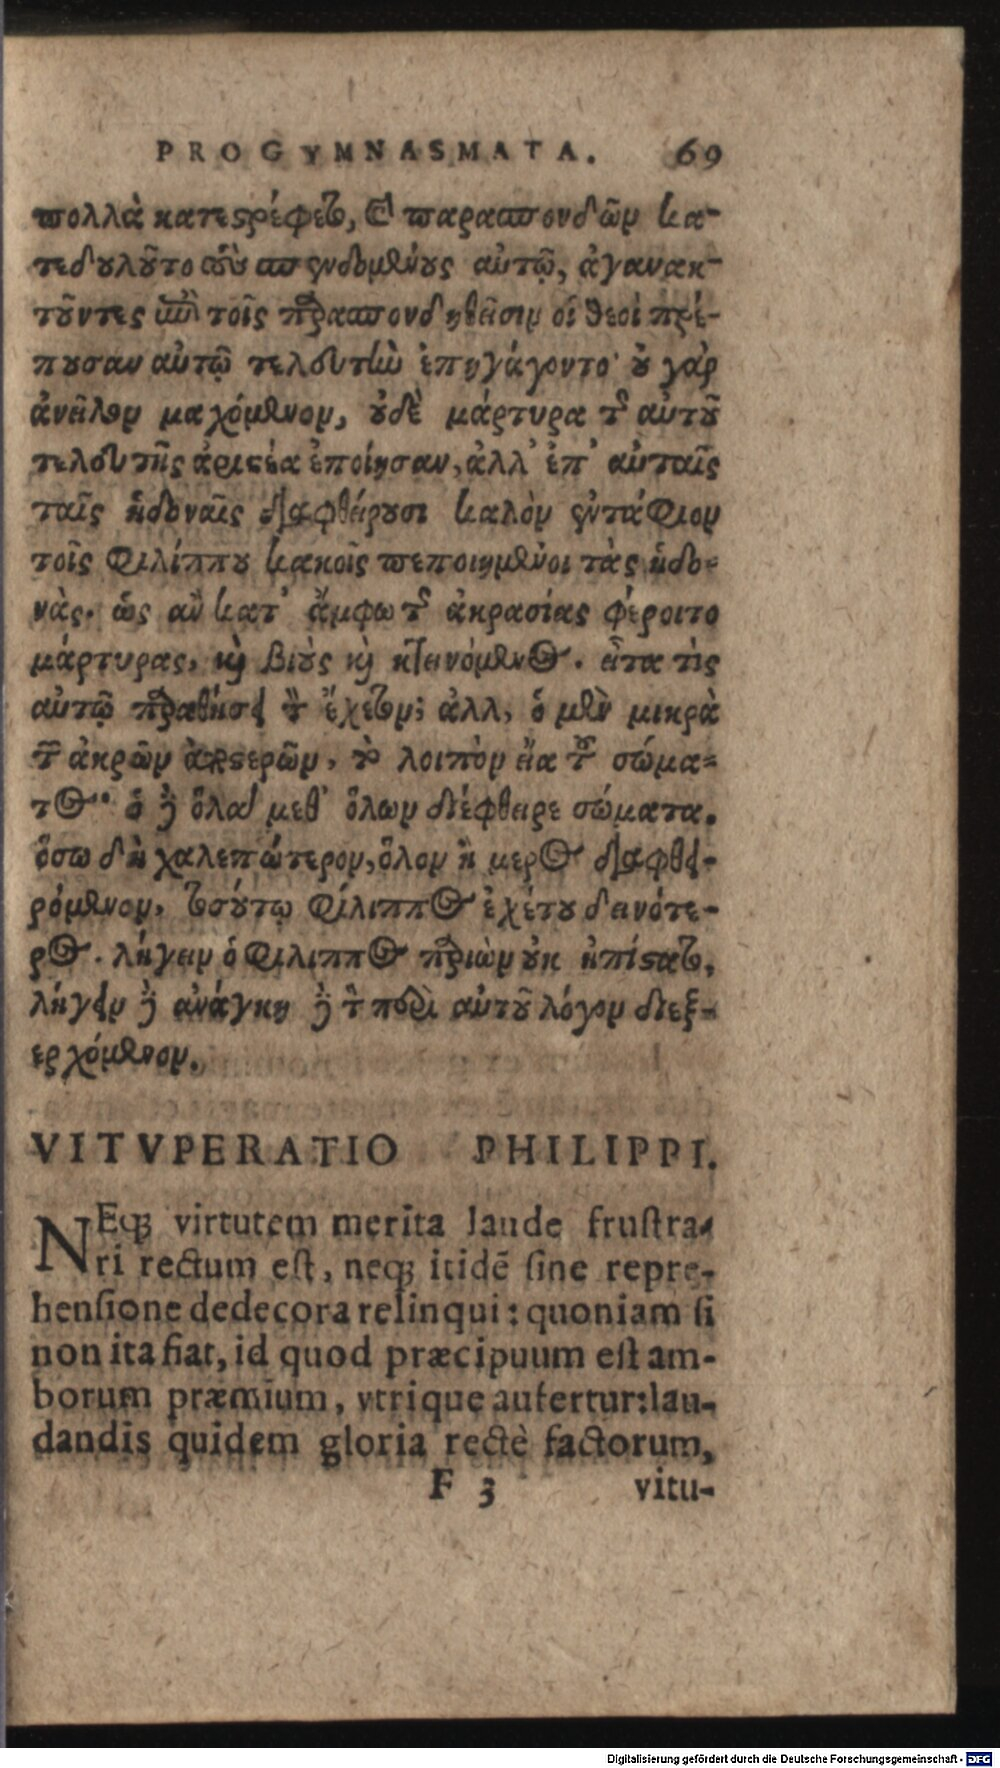 PROGYMNASMATA. 69
πολλὰ κατεστρέφετο, καὶ παρασπονδῶν κα-
τεδουλοῦτο τοὺς σπενδομένους αὐτῷ, ἀγανακ-
τοῦντες ἐπὶ τοῖς παρασπονδηθεῖσιν οἱ θεοὶ πρέ-
πουσαν αὐτῷ τελευτὴν ἐπηγάγοντο· οὐ γὰρ
ἀνεῖλον μαχόμενον, οὐδὲ μάρτυρα τῆς αὐτοῦ
τελευτῆς ἀριστέα ἐποίησαν, ἀλλ' ἐπ' αὐταῖς
ταῖς ἡδοναῖς διαφθείρουσι καλὸν ἐντάφιον
τοῖς Φιλίππου κακοῖς πεποιημένοι τὰς ἡδο-
νὰς. ὡς ἂν κατ' ἄμφω τῆς ἀκρασίας φέροιτο
μάρτυρας, καὶ βιοὺς καὶ κτεινόμενος. εἶτα τὶς
αὐτῷ παραθήσει τὸν ἔχετον; ἀλλ, ὁ μὲν μικρὰ
τῶν ἀκρῶν ἀποστερῶν, τὸ λοιπὸν εἴα τοῦ σώμα-
τος·· ὁ δὲ ὅλα μεθ' ὅλων διέφθειρε σώματα.
ὅσῳ δὴ χαλεπώτερον, ὅλον ἢ μερος διαφθει-
ρόμενον, τοσούτῳ Φίλιππος ἐχέτου δεινότε-
ρος. λήγειν ὁ Φίλιππος παριὼν οὐκ ἠπίστατο,
λήγειν δὲ ἀνάγκη δὲ τὸν περὶ αὐτοῦ λόγον διεξ-
ερχόμενον.
VITVPERATIO PHILIPPI.
NEq; virtutem merita laude frustra-
ri rectum est, neq; itidē sine repre-
hensione dedecora relinqui: quoniam si
non ita fiat, id quod præcipuum est am-
borum præmium, vtrique aufertur: lau-
dandis quidem gloria rectè factorum,
F 3 vitu-
Digitalisierung gefördert durch die Deutsche Forschungsgemeinschaft - DFG